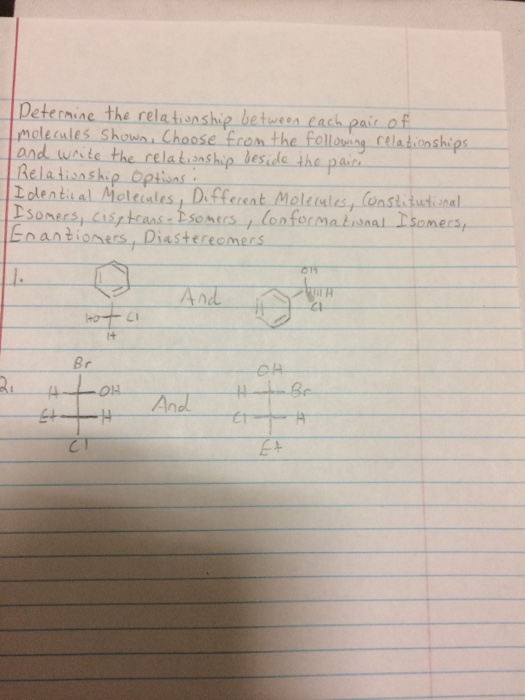 Determine the relationship between each pair of
molecules shown. Choose from the following relationships
and write the relationship beside the pair.
Relationship Options:
Identical Molecules, Different Molecules, Constitutional
Isomers, cis/trans-Isomers, Conformational Isomers,
Enantiomers, Diastereomers
1.
HO Cl
H
And
OH
H
Cl
2.
Br
H OH
Et H
Cl
And
OH
H Br
Cl H
Et